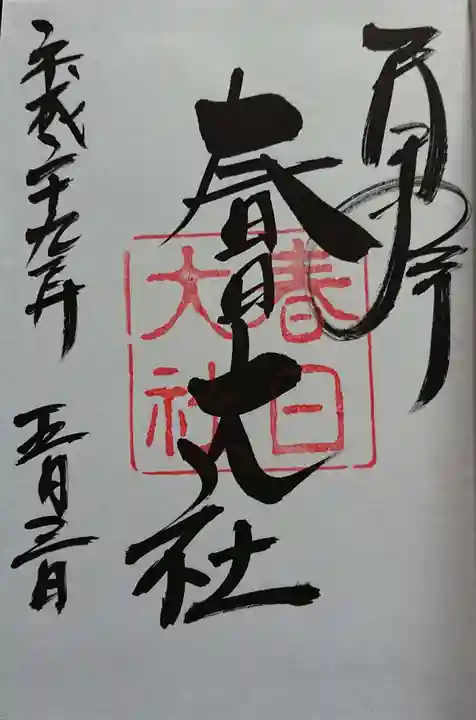 春日大社
春日
大社
平成二十九年
五月三日